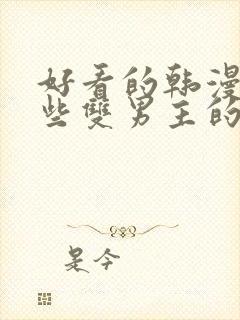 好看的韩漫
些雙男主的
是今